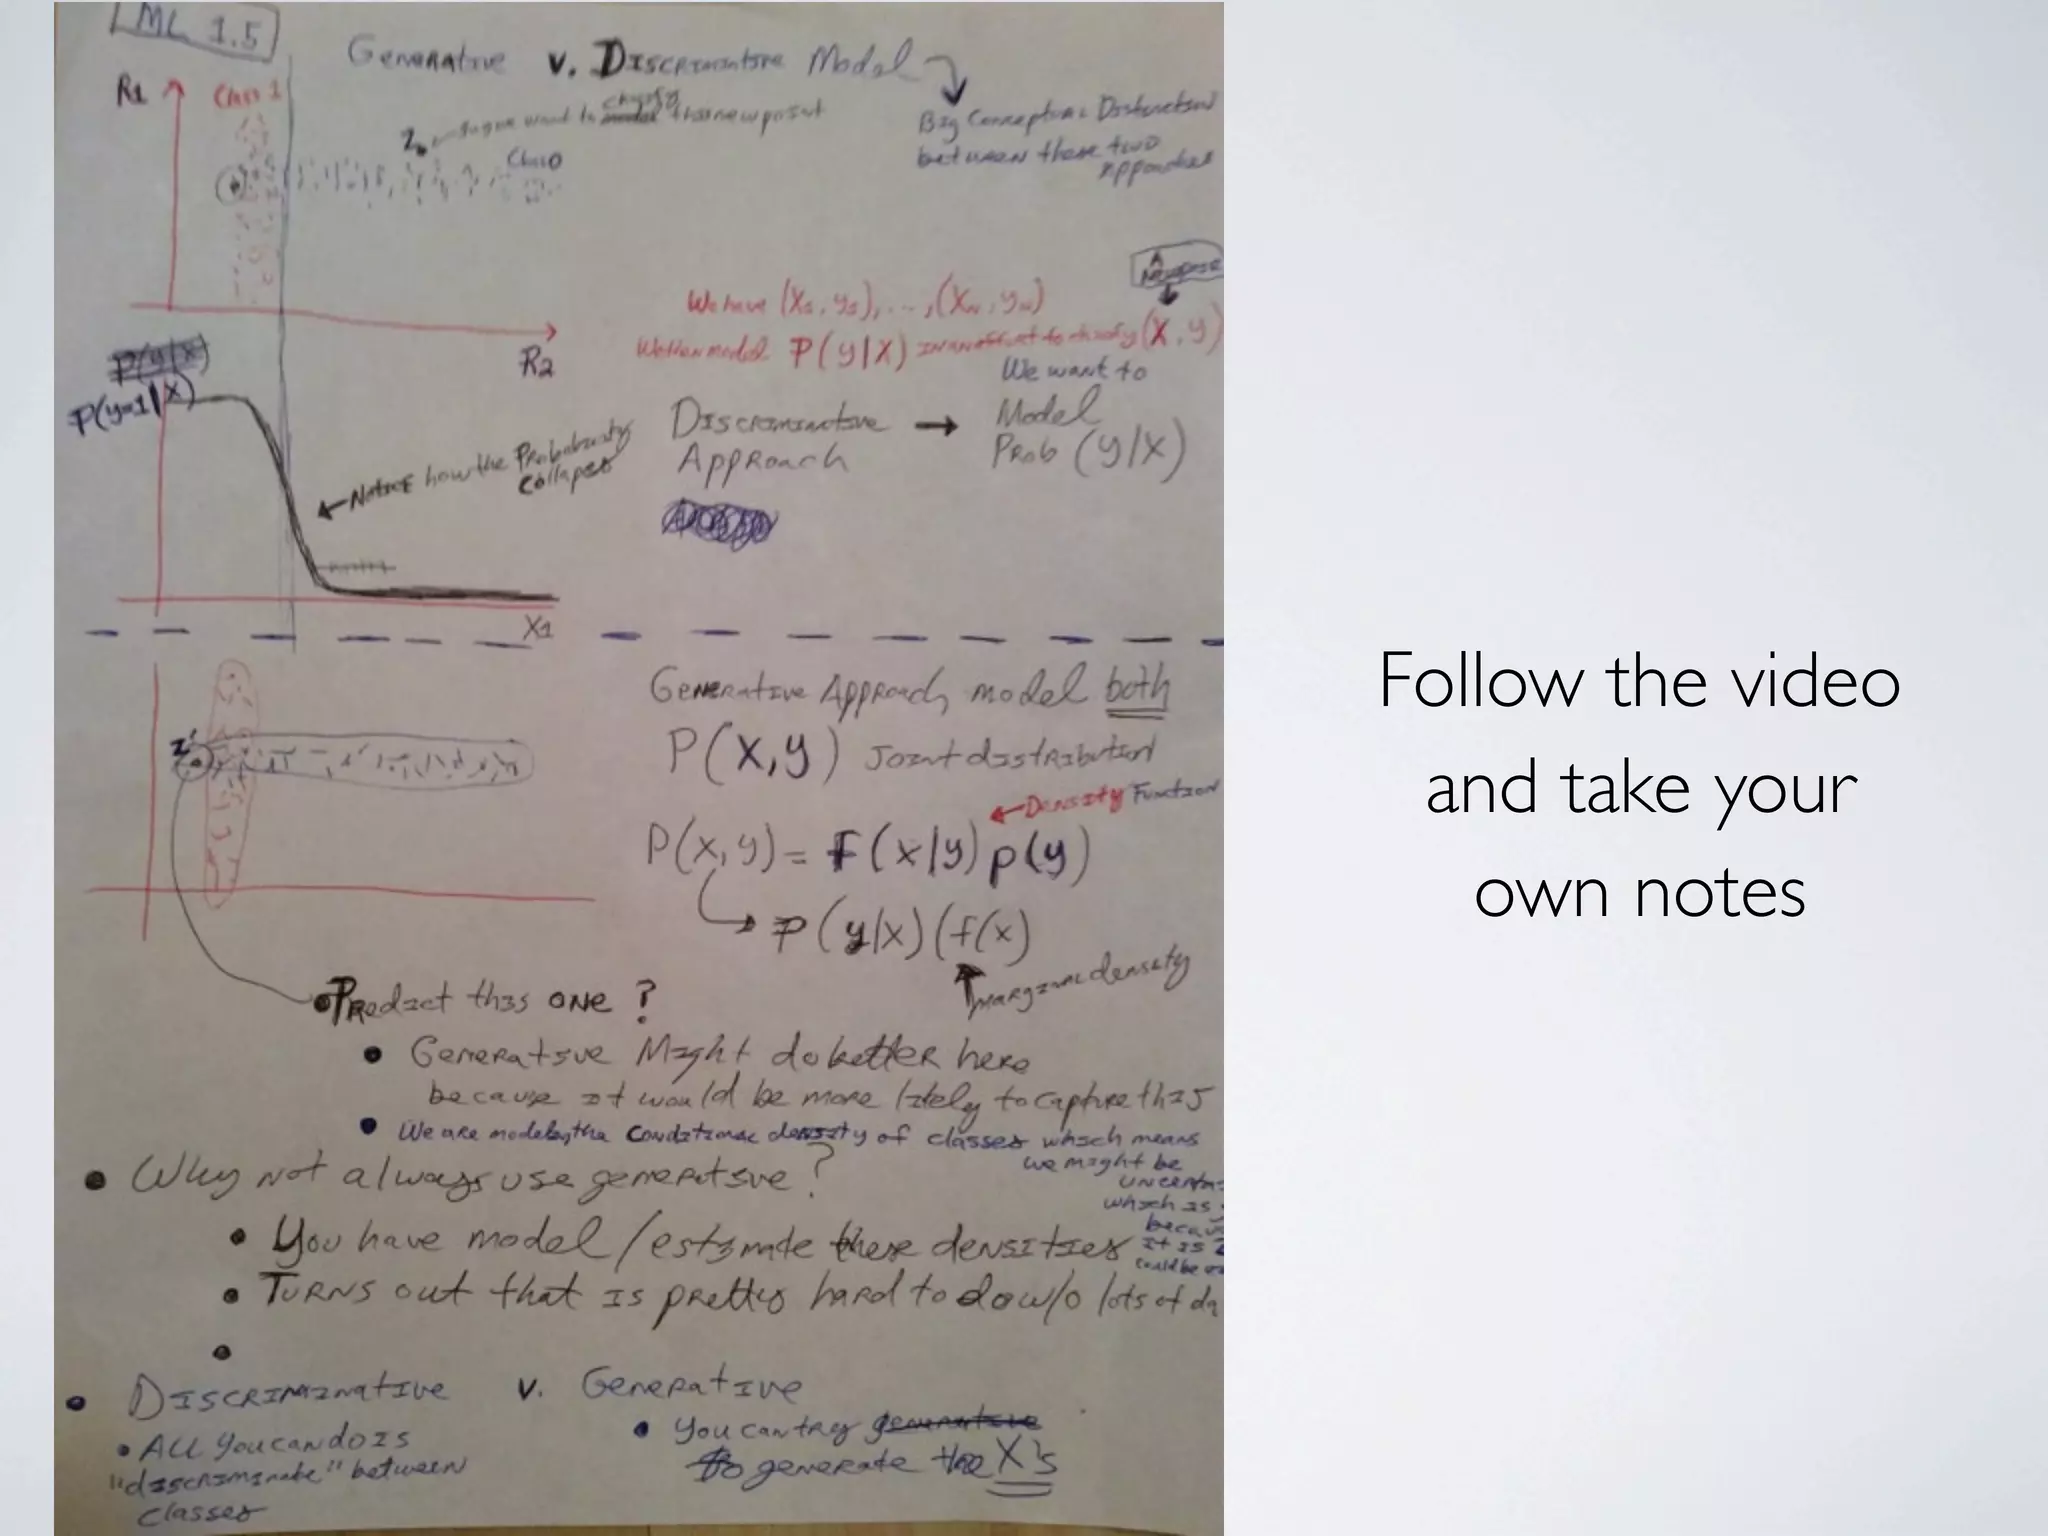 ML 1.5
Generative v. Discriminative Model
Big Conceptual Distinction
between these two
Approaches
R1
Class 1
Z
want to classify this new point
Class 0
R2
We have (X₁, y₁), ..., (X_N, y_N)
We then model P(y|X) in an effort to classify (X, y)
P(y|x)
P(y=1|X)
Notice how the Probability
Collapses
X1
Discriminative
Approach
→
We want to
Model
Prob (y|X)
Generative Approach model both
P(X,y) Joint distribution
← Density Function
P(x,y) = F(x|y) p(y)
P(y|x)(f(x)
Marginal density
Z'
Predict this one?
Generative Might do better here
because it would be more likely to capture this
We are modeling the Conditional density of classes which means
we might be
which is
it is
could be
Why not always use generative?
You have model/estimate these densities
Turns out that is pretty hard to do w/o lots of da
Discriminative v. Generative
ALL you can do is
"discriminate" between
classes
You can try generative
to generate the X's
Follow the video
and take your
own notes